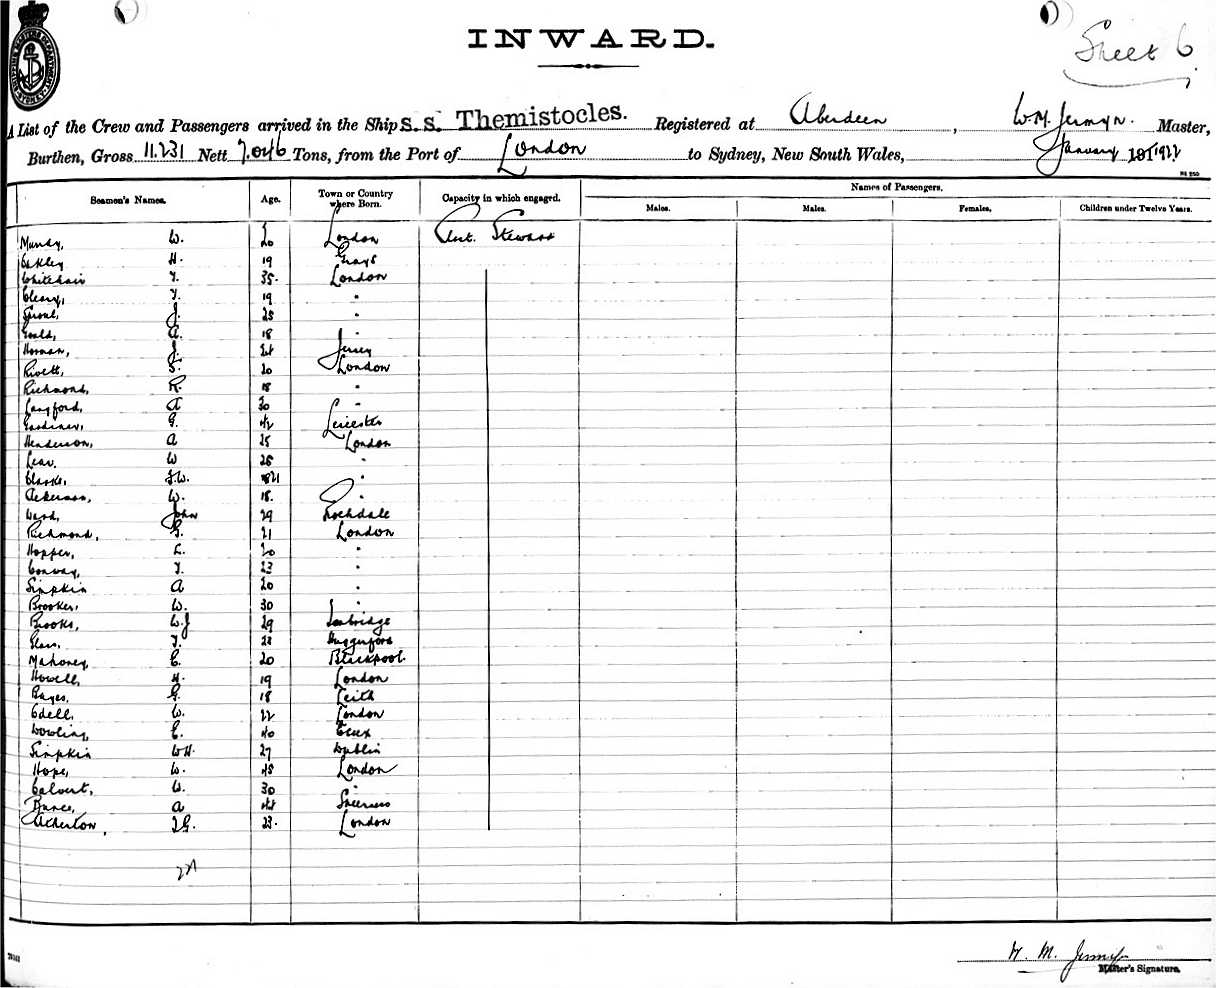 INWARD.
Sheet 6
A List of the Crew and Passengers arrived in the Ship S.S. Themistocles. Registered at Aberdeen, W.M. Jermyn. Master,
Burthen, Gross 11.231 Nett 7.046 Tons, from the Port of London to Sydney, New South Wales, January 1922
Seamen's Names. Age. Town or Country where Born. Capacity in which engaged. Names of Passengers.
Males. Males. Females. Children under Twelve Years.
Mundy, W. 20 London Asst. Steward
Oakley H. 19 Grays
Whitehair T. 35. London
Cleary, T. 19 "
Sproul, J. 25 "
Gould, A. 18 "
Horman, J. 24 Jersey
Rivett, S. 20 London
Richmond, R. 18 "
Langford, A 30 "
Gardiner, G. 42 Leicester
Henderson, A 25 London
Lear, W 28 "
Clarke, J.W. 21 "
Ackerman, W. 18. "
Ward, John 29 Rochdale
Richmond, G. 21 London
Hopper, L. 20 "
Conway, T. 23 "
Simpkin A 20 "
Brooker, W. 30 "
Brooks, W.J 29
T.
Mahoney, C. 20 Blackpool.
Howell, H. 19 London
G. 18 Leith
Odell, W. 22 London
Dowling, C. 40 Essex
Simpkin W.H. 27 Dublin
Hope, W. 45 London
Calvert, W. 30 "
A 44 Sheerness
Atherton, J.G. 23. London
W. M. Jermyn
Master's Signature.